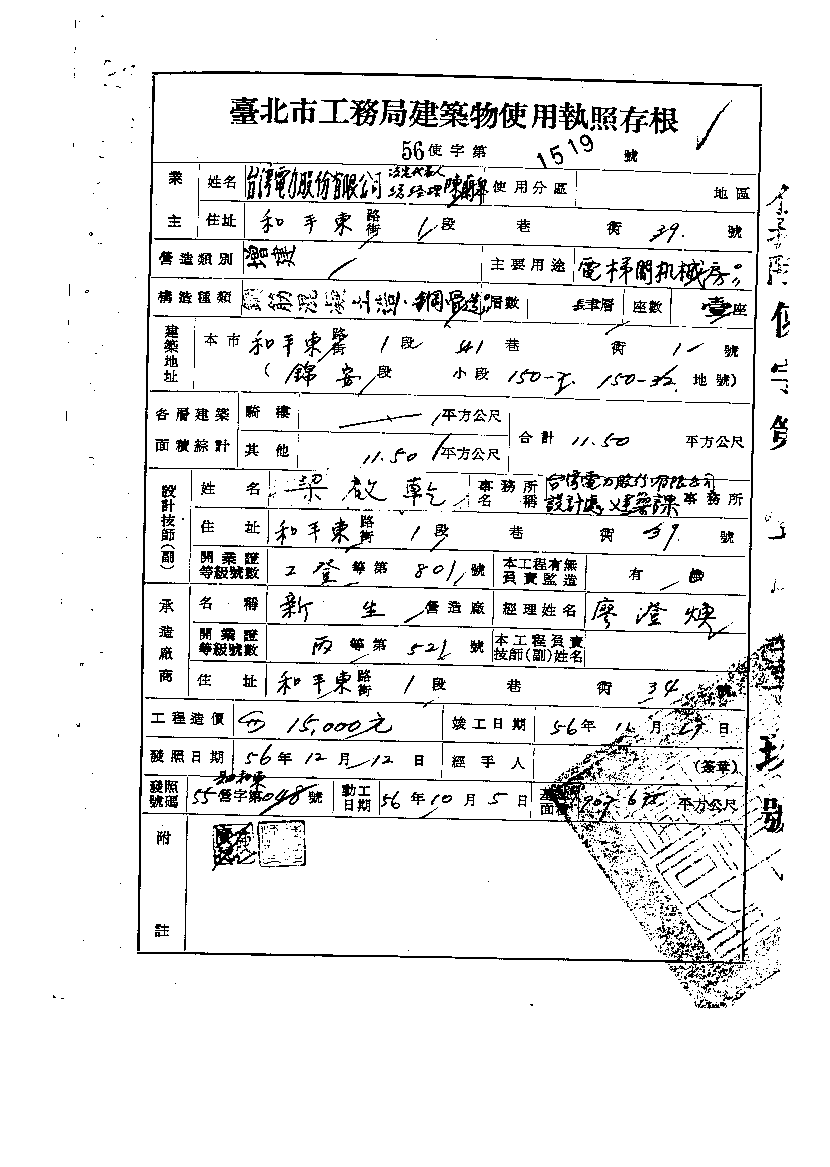 臺北市工務局建築物使用執照存根
56使字第 1519 號
業主 姓名 台灣電力股份有限公司 法定代表人 總經理 陳蘭皋 使用分區 地區
住址 和平東 路街 1段 巷 衖 39. 號
營造類別 增建 主要用途 電梯間机械房
構造種類 鋼筋混凝土造、鋼骨造 層數 層 座數 壹座
建築地址 本市 和平東 路街 1段 41巷 衖 1 號
(錦安段 小段 150- 150-32 地號)
各層建築面積綜計 騎樓 平方公尺 合計 11.50 平方公尺
其他 11.50 平方公尺
設計技師(副) 姓名 梁啟乾 事務所名稱 台灣電力股份有限公司設計處建築課 事務所
住址 和平東 路街 1段 巷 衖 39 號
開業證等級號數 工登等第 801 號 本工程有無負責監造 有
承造廠商 名稱 新生 營造廠 經理姓名 廖澄煥
開業證等級號數 丙等第 521 號 本工程負責技師(副)姓名
住址 和平東 路街 1段 巷 衖 34 號
工程造價 15,000元 竣工日期 56年 11月 日
發照日期 56年 12月 12日 經手人 (簽章)
發照號碼 55營字第048號 動工日期 56年10月5日 面積 平方公尺
附註